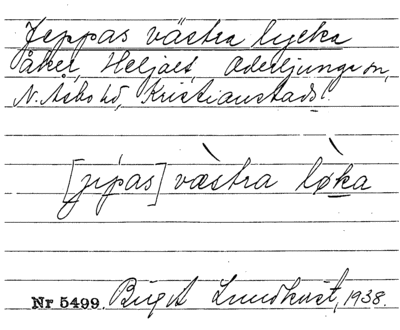 Jeppas västra lycka
åker, Heljalt, Oderljunga sn,
N. Åsbo hd, Kristianstads l.
[jipas] væ̀stra lø̀ka
Nr 5499. Birgit Lundkvist, 1938.